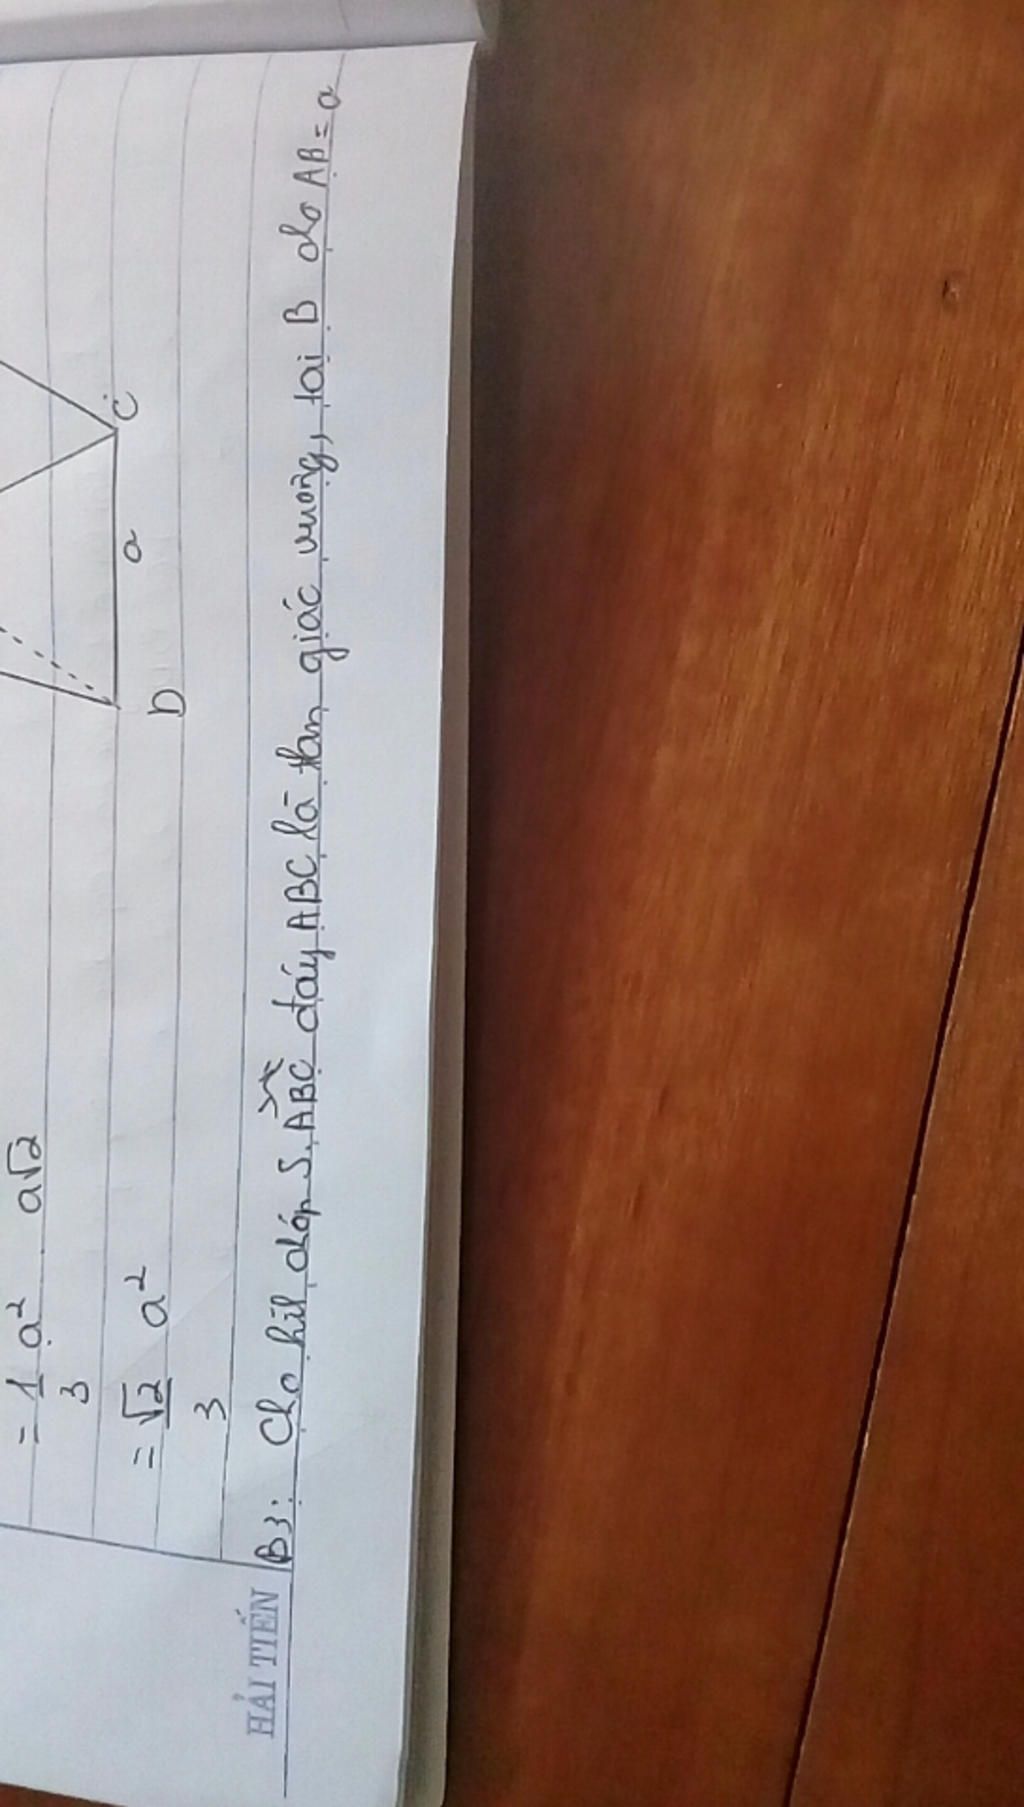 = 1 a² a√2
3
C
a
D
= √2 a²
3
HẢI TIẾN
B3: Cho hìl chóp S.ABC đáy ABC là tam giác vuông, tại B cho AB = a